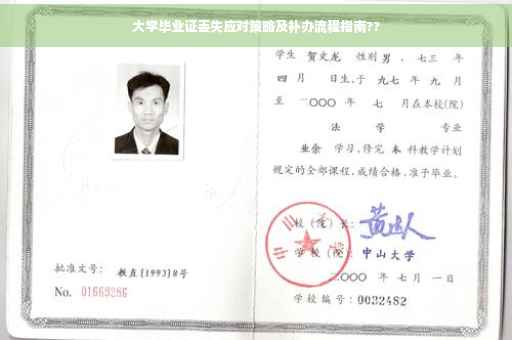 大学毕业证丢失应对策略及补办流程指南??
学生 贺文龙 性别男，七三 年
四 月 日生，于 九七 年 九 月
至 二〇〇〇 年 七 月在本校(院)
法 学 专业
业余 学习，修完 本 科教学计划
规定的全部课程，成绩合格，准予毕业。
校（院）长：
学校（院）：中山大学
二〇〇〇 年 七 月 一 日
学校编号：0032482
批准文号：教直(1993)8号
No. 01669286